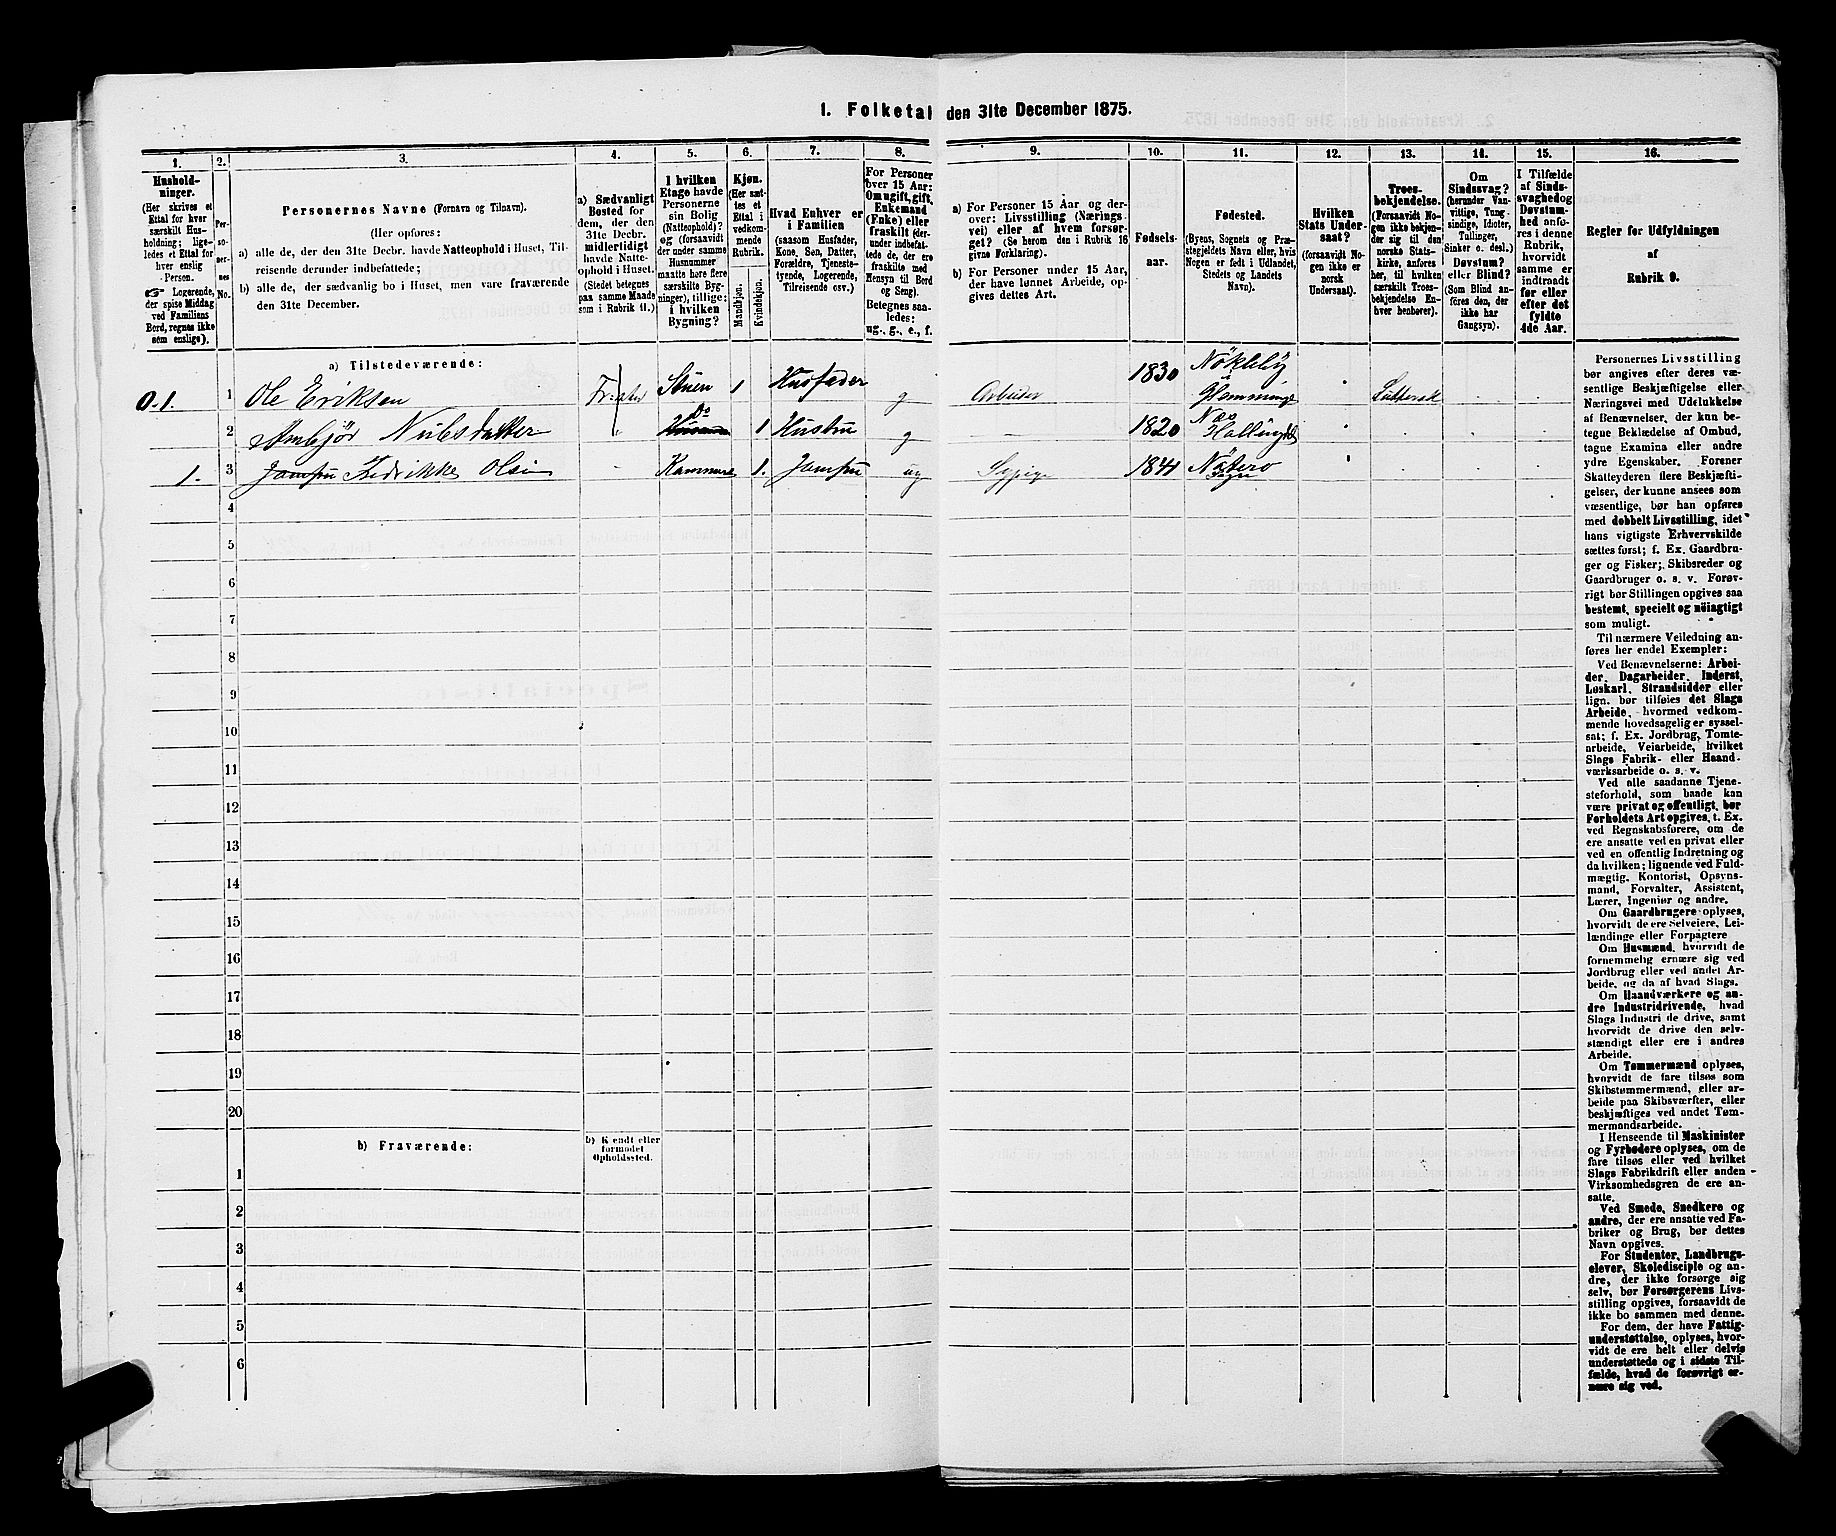 1. Folketal den 31te December 1875.
1.
2.
3.
4.
5.
6.
7.
8.
9.
10.
11.
12.
13.
14.
15.
16.
Hushold-
ninger.
(Her skrives et
Ettal for hver
særskilt Hus-
holdning; lige-
ledes et Ettal for
hver enslig
Person.
☞ Logerende,
der spise Middag
ved Familiens
Bord, regnes ikke
som enslige).
Per-
so-
ner-
nes
No.
Personernes Navne (Fornavn og Tilnavn).
(Her opføres:
a) alle de, der den 31te Decbr. havde Natteophold i Huset, Til-
reisende derunder indbefattede;
b) alle de, der sædvanlig bo i Huset, men vare fraværende
den 31te December.
a) Sædvanligt
Bosted for
dem, der den
31te Decbr.
midlertidigt
havde Natte-
ophold i Huset.
(Stedet betegnes
paa samme Maade
som i Rubrik 11.)
I hvilken
Etage havde
Personerne
sin Bolig
(Natteophold)?
og (forsaavidt
der under samme
Husnummer
maatte høre flere
særskilte Byg-
ninger), tillige:
i hvilken
Bygning?
Kjøn.
(Her sæt-
tes et
Ettal i
vedkom-
mende
Rubrik.
Mandkjøn.
Kvindekjøn.
Hvad Enhver er
i Familien
(saasom Husfader,
Kone, Søn, Datter,
Forældre, Tjeneste-
tyende, Logerende,
Tilreisende osv.)
For Personer
over 15 Aar:
Om ugift, gift,
Enkemand
(Enke) eller
fraskilt (der-
under indbefat-
tede de, der ere
fraskilte med
Hensyn til Bord
og Seng).
Betegnes saa-
ledes:
ug., g., e., f.
a) For Personer 15 Aar og der-
over: Livsstilling (Nærings-
vei) eller af hvem forsør-
get? (Se herom den i Rubrik 16
givne Forklaring).
b) For Personer under 15 Aar,
der have lønnet Arbeide, op-
gives dettes Art.
Fødsels-
aar.
Fødested.
(Byens, Sognets og Præ-
stegjeldets Navn eller, hvis
Nogen er født i Udlandet,
Stedets og Landets
Navn).
Hvilken
Stats Under-
saat?
(forsaavidt No-
gen ikke er
norsk
Undersaat).
Troes-
bekjendelse.
(Forsaavidt No-
gen ikke bekjen-
der sig til den
norske Stats-
kirke, anføres
her, til hvilken
særskilt Troes-
bekjendelse En-
hver henhører).
Om
Sindssvag?
(herunder Van-
vittige, Tung-
sindige, Idioter,
Tullinger,
Sinker o. desl.)
Døvstum?
eller Blind?
(Som Blind an-
føres den, der
ikke har
Gangsyn).
I Tilfælde
af Sinds-
svaghed og
Døvstum-
hed anfø-
res i denne
Rubrik,
hvorvidt
samme er
indtraadt
før eller
efter det
fyldte
4de Aar.
Regler for Udfyldningen
af
Rubrik 9.
a) Tilstedeværende:
0.1. 1 Ole Eriksen Stuen 1 Husfader g Arbeider 1830 Nökleby Glemminge Luthersk
2 Ambjör Nielsdatter Do 1 Hustru g — 1820 Næs Hallingd
1. 3 Jomfru Fredrikke Olsen Kammers 1. Jomfru ug Sypige 1841 Nöterö Sogn
4
5
6
7
8
9
10
11
12
13
14
15
16
17
18
19
20
b) Fraværende:
b) Kjendt eller
formodet
Opholdssted.
1
2
3
4
5
6
Personernes Livsstilling
bør angives efter deres væ-
sentlige Beskjæftigelse eller
Næringsvei med Udelukkelse
af Benævnelser, der kun be-
tegne Beklædelse af Ombud,
tagne Examina eller andre
ydre Egenskaber. Forener
Skatteyderen flere Beskjæfti-
gelser, der kunne ansees som
væsentlige, bør han opføres
med dobbelt Livsstilling, idet
hans vigtigste Erhvervskilde
sættes først; f. Ex. Gaardbru-
ger og Fisker; Skibsreder og
Gaardbruger o. s. v. Forøv-
rigt bør Stillingen opgives saa
bestemt, specielt og nöiagtigt
som muligt.
Til nærmere Veiledning an-
føres her endel Exempler:
Ved Benævnelserne: Arbei-
der, Dagarbeider, Inderst,
Løskarl, Strandsidder eller
lign. bør tilføies det Slags
Arbeide, hvormed vedkom-
mende hovedsagelig er syssel-
sat; f. Ex. Jordbrug, Tomte-
arbeide, Veiarbeide, hvilket
Slags Fabrik- eller Haand-
værksarbeide o. s. v.
Ved alle saadanne Tjene-
steforhold, som baade kan
være privat og offentligt, bør
Forholdets Art opgives, t. Ex.
ved Regnskabsførere, om de
ere ansatte ved en privat eller
ved en offentlig Indretning og
da hvilken; lignende ved Fuld-
mægtig, Kontorist, Opsyns-
mand, Forvalter, Assistent,
Lærer, Ingeniør og andre.
Om Gaardbrugere oplyses,
hvorvidt de ere Selveiere, Lei-
lændinge eller Forpagtere
Om Husmænd, hvorvidt de
fornemmelig ernære sig ved
Jordbrug eller ved andet Ar-
beide, og da af hvad Slags.
Om Haandværkere og an-
dre Industridrivende, hvad
Slags Industri de drive, samt
hvorvidt de drive den selv-
stændigt eller ere i andres
Arbeide.
Om Tømmermænd oplyses,
hvorvidt de fare tilsøs som
Skibstømmermænd, eller ar-
beide paa Skibsværfter, eller
beskjæftiges ved andet Tøm-
mermandsarbeide.
I Henseende til Maskinister
og Fyrbødere oplyses, om de
fare tilsøs eller ved hvilket
Slags Fabrikdrift eller anden
Virksomhedsgren de ere an-
satte.
Ved Smede, Snedkere og
andre, der ere ansatte ved Fa-
briker og Brug, bør dettes
Navn opgives.
For Studenter, Landbrugs-
elever, Skoledisciple og an-
dre, der ikke forsørge sig
selv, bør Forsørgerens Livs-
stilling opgives, forsaavidt de
ikke bo sammen med denne.
For dem, der have Fattig-
understøttelse, oplyses, hvor-
vidt de ere helt eller delvis
understøttede og i sidste Til-
fælde, hvad de forøvrigt er-
nære sig ved.